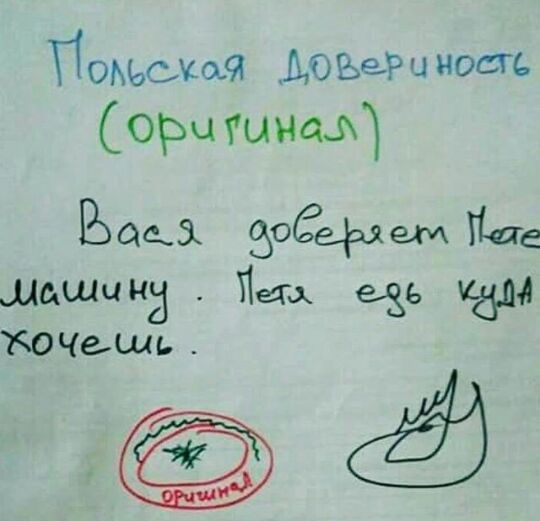 Польская Довериность
(оригинал)
Вася доверяет Пете
машину. Петя едь куДА
хочешь.
оригинал